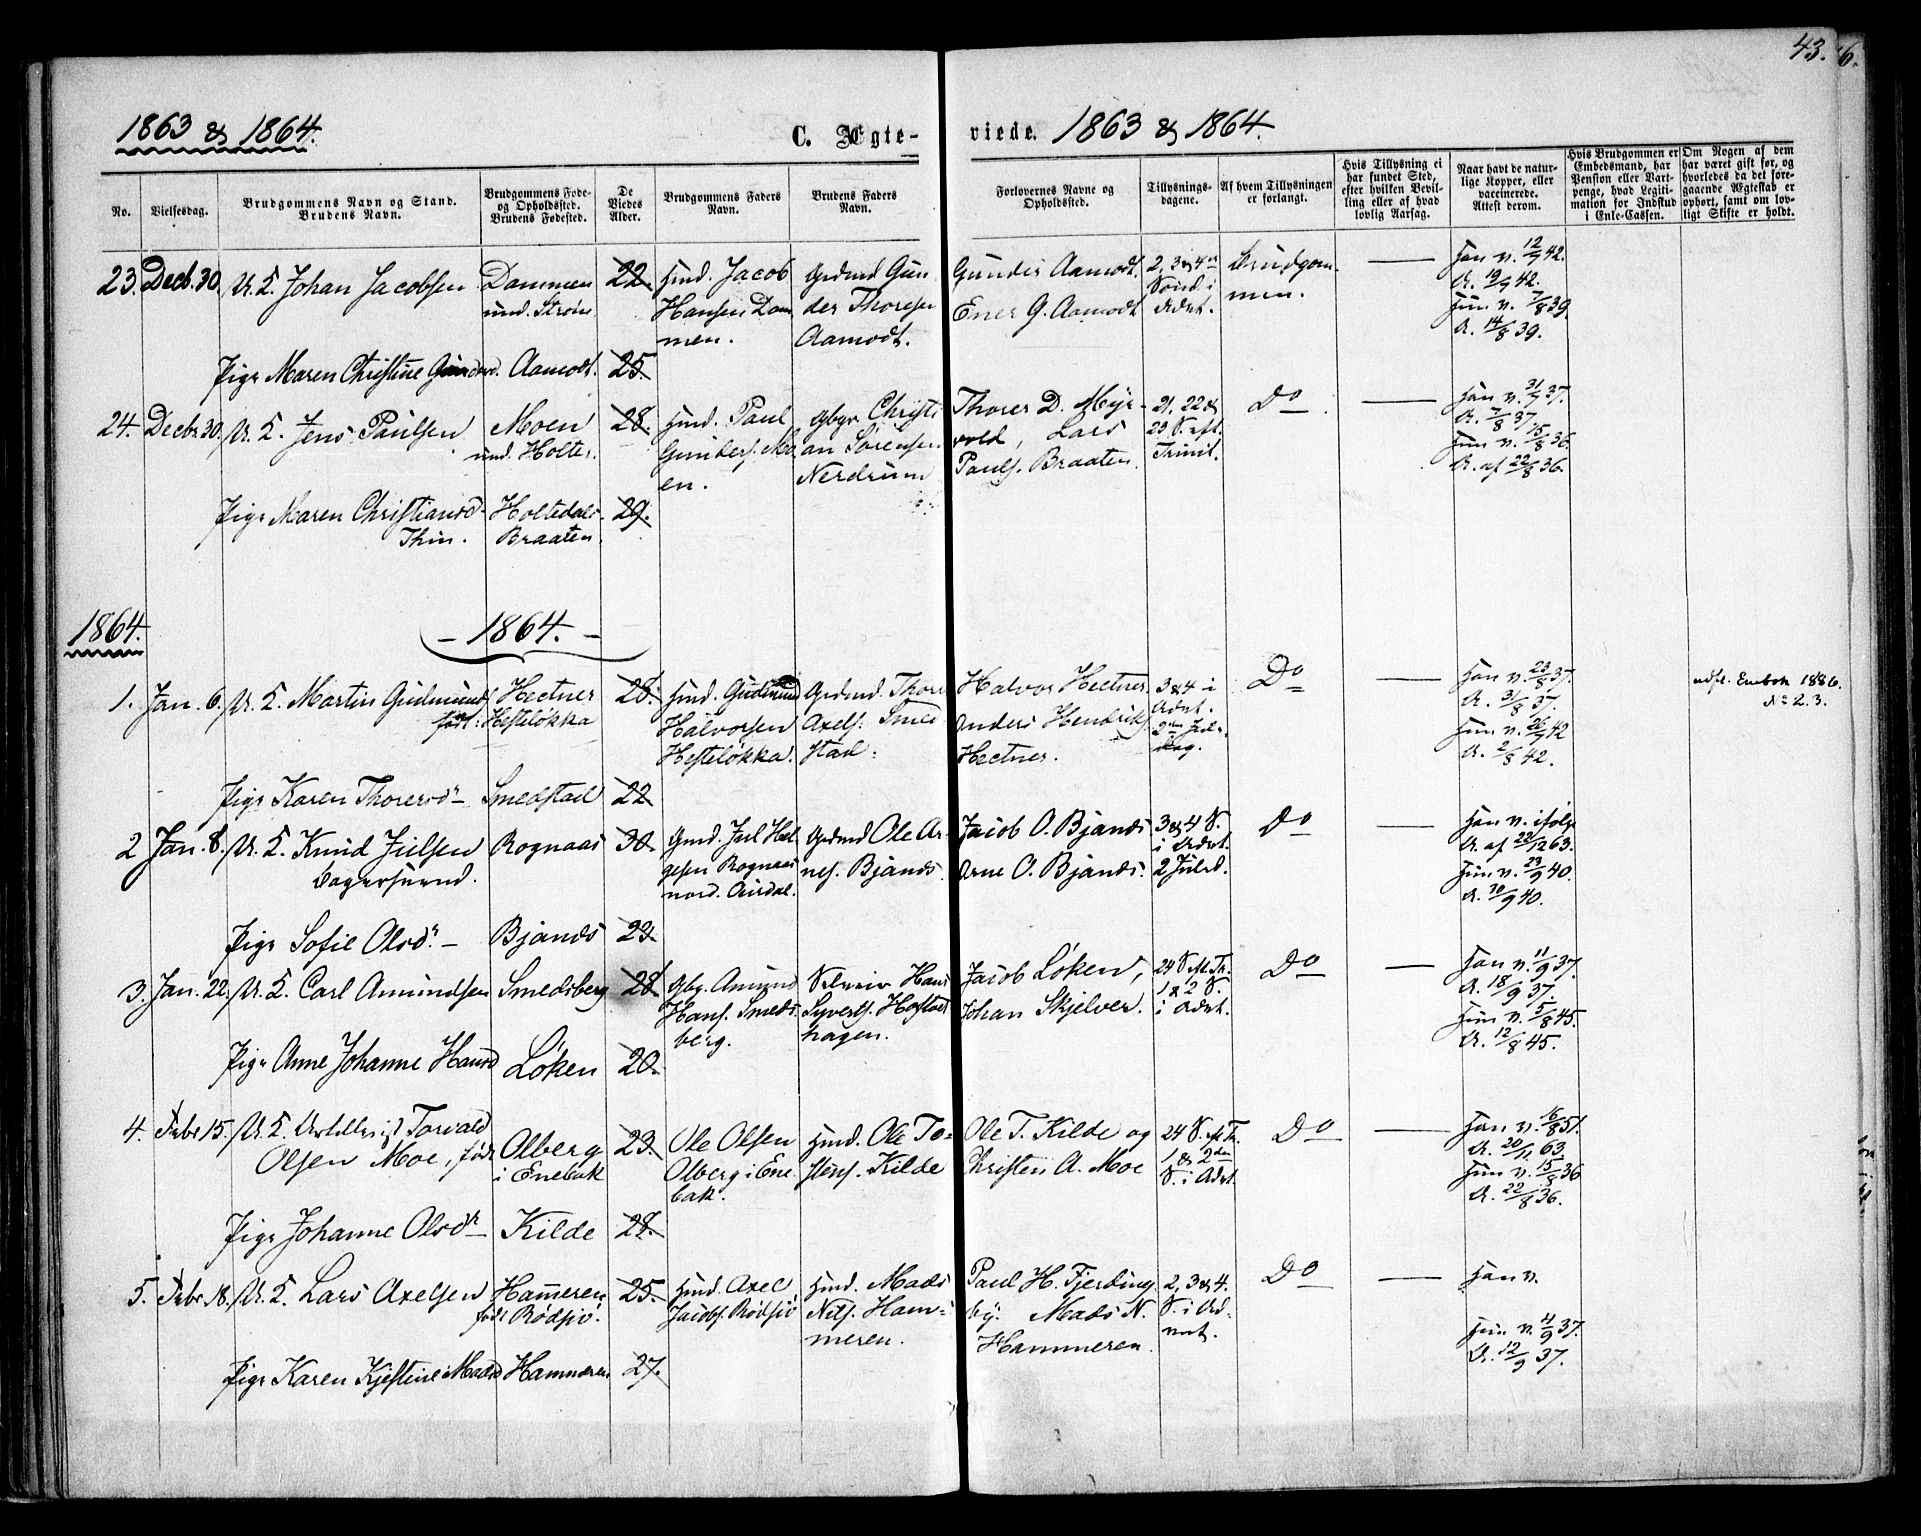 43.
6.
1863 & 1864.
C. Ægte-
viede. 1863 & 1864.
No.
Vielsesdag.
Brudgommens Navn og Stand.
Brudens Navn.
Brudgommens Føde-
og Opholdssted.
Brudens Fødested.
De
Viedes
Alder.
Brudgommens Faders
Navn.
Brudens Faders
Navn.
Forlovernes Navne og
Opholdssted.
Tillysnings-
dagene.
Af hvem Tillysningen
er forlangt.
Hvis Tillysning ei
har fundet Sted,
efter hvilken Bevil-
ling eller af hvad
lovlig Aarsag.
Naar havt de natur-
lige Kopper, eller
vaccinerede.
Attest derom.
Hvis Brudgommen er
Embedsmand, har
Pension eller Vart-
penge, hvad Legiti-
mation for Indskud
i Enke-Cassen.
Om Nogen af dem
har været gift før, og
hvorledes da det fore-
gaaende Ægteskab er
ophørt, samt om lov-
ligt Skifte er holdt.
23. Decb. 30. U. K. Johan Jacobsen
Dammen
und. Strøm
22.
Hmd. Jacob
Hansen Dam
men.
Grdmd Gun
der Thoresen
Aamodt.
Gunder Aamodt.
Ener G. Aamodt
2, 3 & 4de
Sønd. i
Advt.
Brudgom.
men.
Han v. 12/9 42.
A. 19/9 42.
Hun v. 7/8 39.
A. 14/8 39.
Pige Maren Christine Gundersd. Aamodt. 25.
24. Decbr 30. U. K. Jens Paulsen
Moen
und. Holter.
28.
Hmd. Paul
Gunders. Mo
en.
Gbgr. Christi
an Sørensen
Nerdrum
Thorer D. Myr-
vold, Lars
Pauls. Braaten.
21, 22 &
23 S. eft.
Trinit.
Do
Han v. 31/7 37.
A. 7/8 37
Hun v. 15/8 36.
A. af 22/8 36.
Pige Maren Christiansd-
Thin.
Holtedals-
Braaten.
29.
1864.
- 1864. -
1. Jan. 6. U. K. Martin Gudmunds
født:
Hectner
Hesteløkka
28.
Hmd. Gudmund
Halvorsen
Hesteløkka.
Grdmd. Thore
Axels. Smed
stad.
Halvor Hectner.
Anders Hendriks
Hectner.
3 & 4 i
Advt.
2den Jule-
dag.
Do
Han v. 23/8 37.
A. 31/8 37.
Hun v. 26/7 42
A. 2/8 42.
udfl. Enebak 1886.
No 23.
Pige Karen Thoresdr- Smedstad 22
2 Jan. 8. U. K. Knud Juelsen
Bagersvend.
Rognaas
30.
Gmd. Juel Hel
gesen Rognaas
nord. Aurdal.
Grdmd Ole Ar-
nes. Bjands.
Jacob O. Bjands.
Arne O. Bjands.
3 & 4 S.
i Advt.
2 Juled.
Do
Han v. ifølge
A. af 22/12 63.
Hun v. 23/9 40.
A. 30/9 40.
Pige Sofie Olsdr.- Bjands 23.
3. Jan. 22. U. K. Carl Amundsen
Smedsberg
28
Gbg. Amund
Hans. Smeds
berg.
Selveier Hans
Syverts. Hofstad
hagen.
Jacob Løken,
Johan Skjelver.
24 S. eft. Tr.
1 & 2 S.
i Advt.
Do
Han v. 11/9 37.
A. 18/9 37.
Hun v. 5/8 45.
A. 12/8 45.
Pige Anne Johanne Hansd Løken 20.
4. Febr 15. U. K. Artillerist Torvald
Olsen Moe, født
Olberg
i Enebak
23.
Ole Olsen
Olberg i Ene
bak.
Hmd. Ole To-
stens. Kilde
Ole T. Kilde og
Christen A. Moe
24 S. eft. Tr.
1 & 2den
S. i Advt.
Do
Han v. 16/8 51.
A. 20/11 63.
Hun v. 15/8 36
A. 22/8 36.
Pige Johanne Olsdr- Kilde 28.
5. Febr. 18. U. K. Lars Axelsen
Hammeren
født Rødsjø.
25.
Hmd. Axel
Jacobs. Rødsjø
Hmd. Mads
Nils. Ham-
meren.
Paul H. Fjerding
by. Mads N.
Hammeren.
2, 3 & 4.
S. i Ad-
vnt.
Do
Han v.
Hun v. 4/9 37.
A. 12/9 37.
Pige Karen Kjestine Madsd Hammeren. 27.